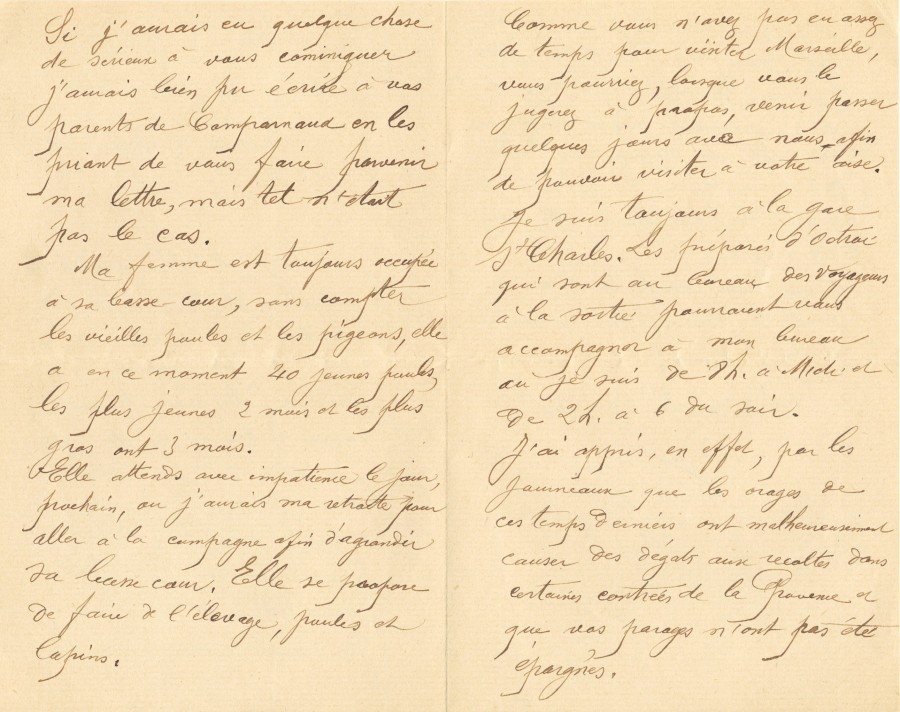 Si j'aurais eu quelque chose
de sérieux à vous cominiquer
j'aurais bien pu écrire à vos
parents de Camparnaud en les
priant de vous faire parvenir
ma lettre, mais tel n'était
pas le cas.
Ma femme est toujours occupée
à sa basse-cour, sans compter
les vieilles poules et les pigeons, elle
a en ce moment 40 jeunes poules,
les plus jeunes 2 mois et les plus
gros ont 3 mois.
Elle attends avec impatience le jour,
prochain, ou j'aurais ma retraite pour
aller à la campagne afin d'agrandir
sa basse cour. Elle se propose
de faire de l'élevage, poules et
lapins.
Comme vous n'avez pas eu assez
de temps pour visiter Marseille,
vous pourriez, lorsque vous le
jugerez à propos, venir passer
quelques jours avec nous afin
de pouvoir visiter à votre aise.
Je suis toujours à la gare
St Charles. Les préposés d'Octroi
qui sont au bureau des Voyageurs
à la sortie pourraient vous
accompagner à mon bureau
où je suis de 8h. à Midi et
de 2h. à 6 du soir.
J'ai appris, en effet, par les
journeaux que les orages de
ces temps derniers ont malheureusement
causer des dégats aux recoltes dans
certaines contrées de la Provence et
que vos parages n'ont pas été
épargnés.